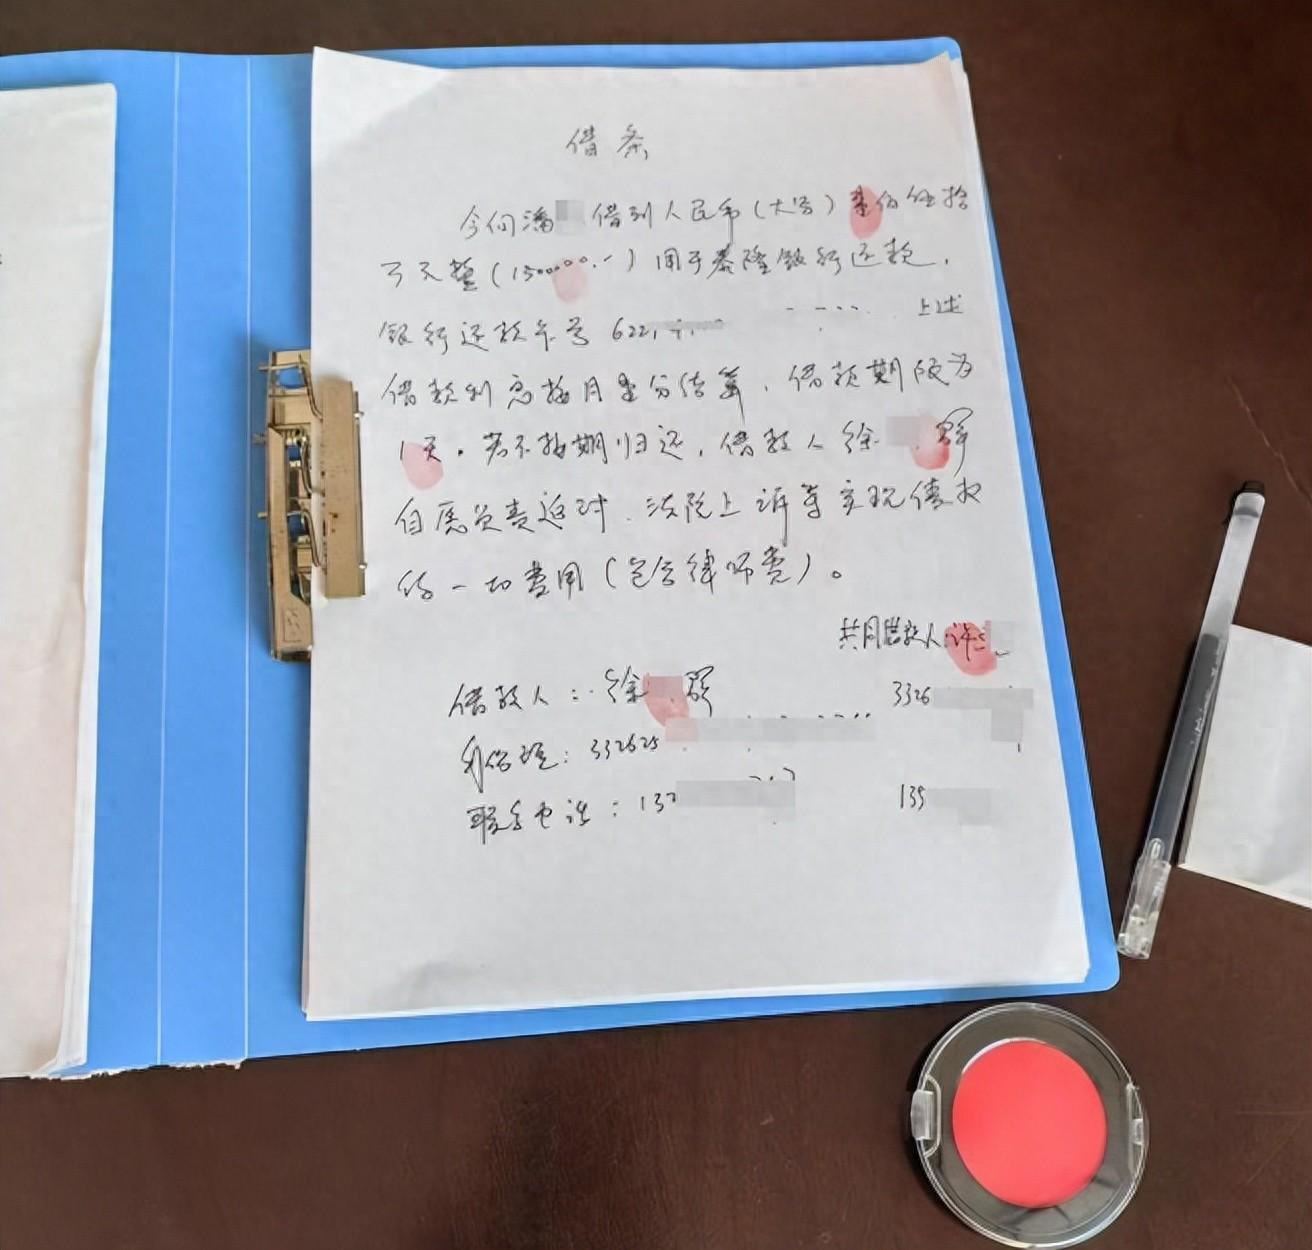 借条
今向潘 借到人民币（大写）壹佰伍拾
万元整（1500000.-）用于泰隆银行还款，
银行还款卡号 622 上述
借款利息按月壹分结算，借款期限为
1天。若不按期归还，借款人徐
自愿负责追讨、法院上诉等实现债权
的一切费用（包含律师费）。
共同借款人：许
借款人：徐 3326
身份证：332625
联系电话：137 139